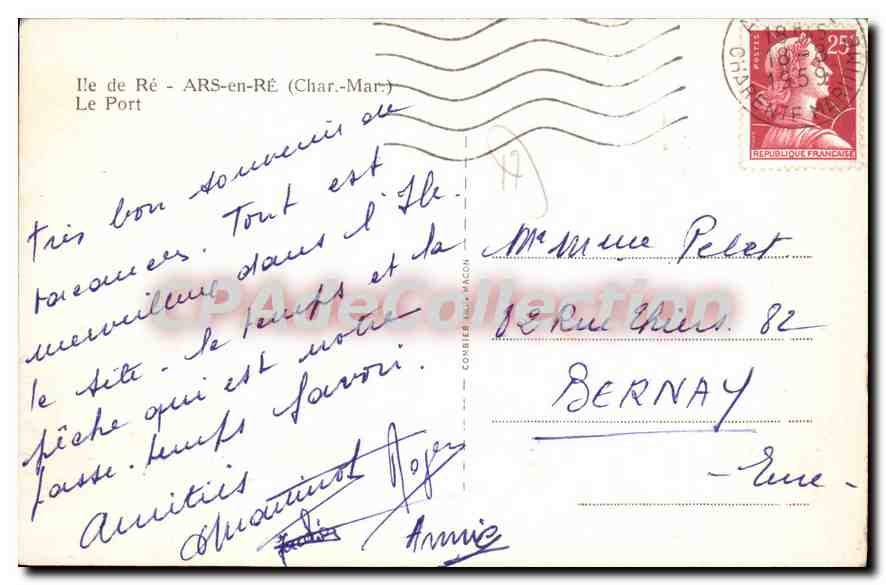 Ile de Ré - ARS-en-RÉ (Char.-Mar.)
Le Port
Très bon souvenir de
vacances. Tout est
merveilleux dans l'Ile.
le site - le temps et la
pêche qui est notre
passe-temps favori.
Amitiés
Martinot Roger
Annie
COMBIER IMP. MACON
17
18-8
1959
CHARENTE MARITIME
POSTES
25F
REPUBLIQUE FRANCAISE
Mr Mme Pelet
82 Rue Thiers. 82
BERNAY
- Eure -
CPAdeCollection